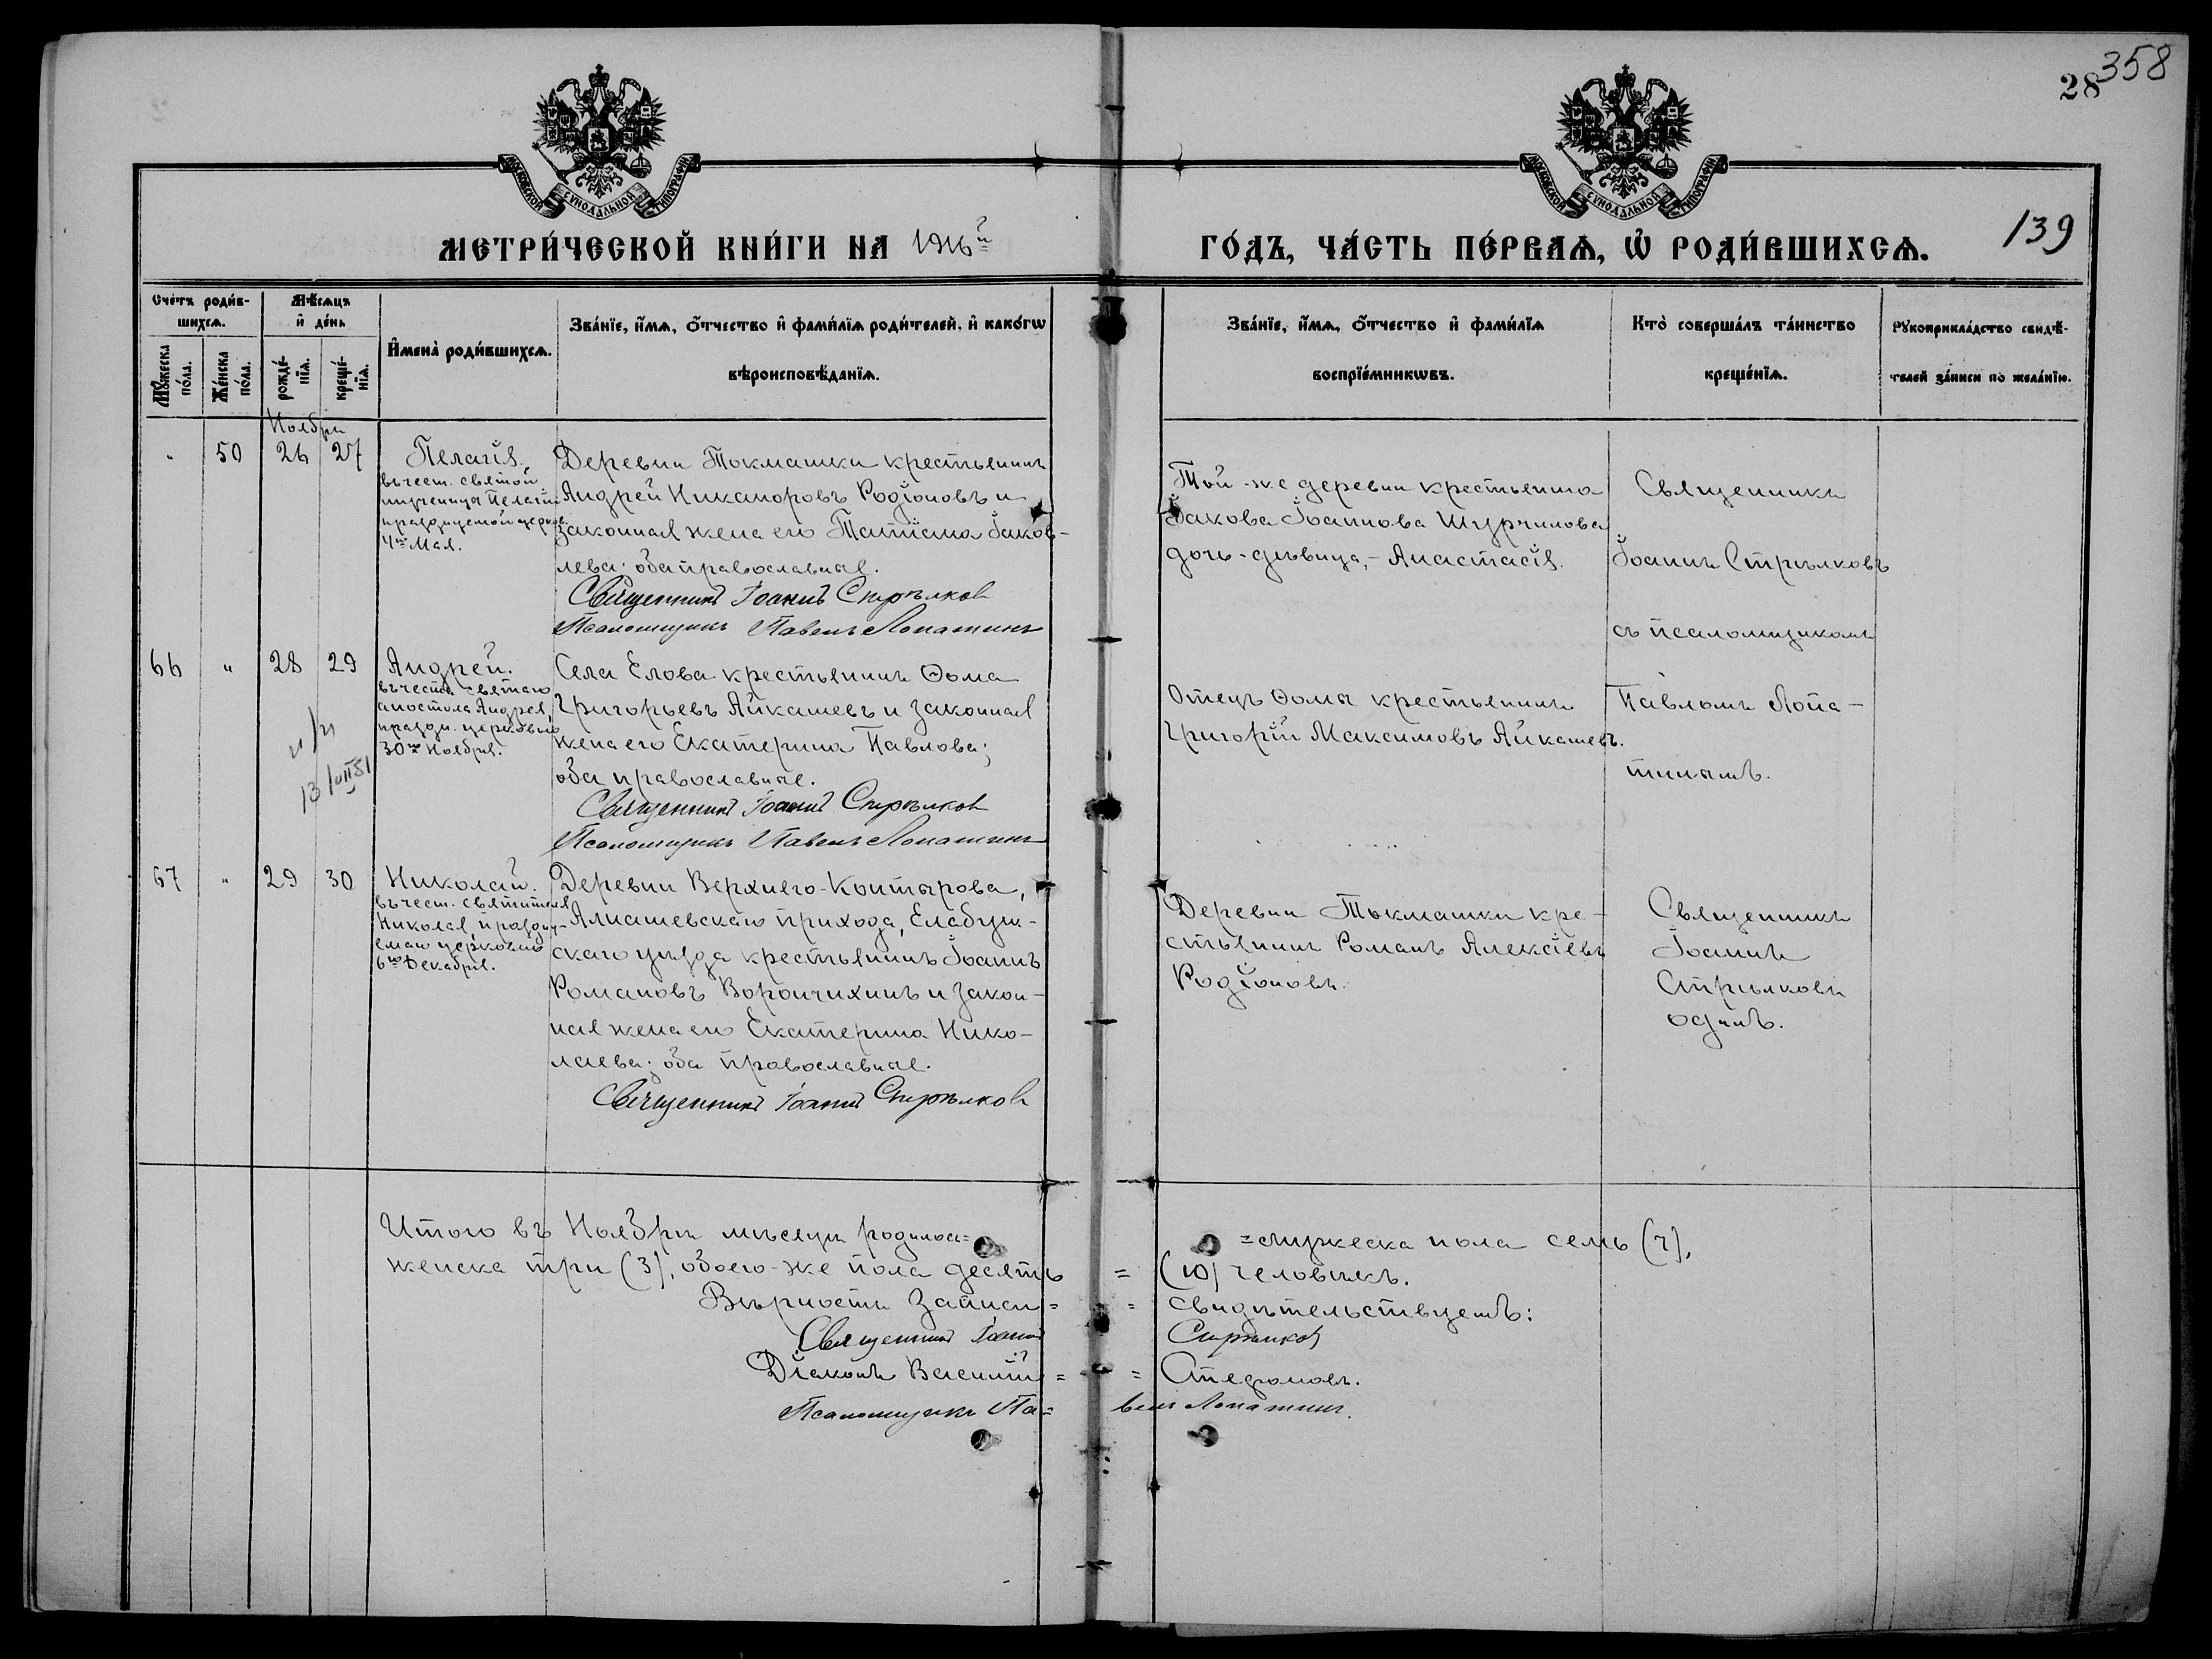 358
28
МОСКОВСКОЙ СѴНОДАЛЬНОЙ ТИПОГРАФІИ
МОСКОВСКОЙ СѴНОДАЛЬНОЙ ТИПОГРАФІИ
МЕТРИ́ЧЕСКОЙ КНИ́ГИ НА 1916й
ГО́ДЪ, ЧА́СТЬ ПЕ́РВАѦ, Ѡ҆ РОДИ́ВШИХСѦ.
139
Сче́тъ роди́в-
шихсѧ.
Мꙋ́жеска
по́ла.
Же́нска
по́ла.
Мѣ́сѧцъ
и҆ де́нь
рожде́-
нїѧ.
креще́-
нїѧ.
И҆мена̀ роди́вшихсѧ.
Зва́нїе, и҆́мѧ, ѻ҆́тчество и҆ фами́лїѧ роди́телей, и҆ како́гѡ
вѣроисповѣ́данїѧ.
Зва́нїе, и҆́мѧ, ѻ҆́тчество и҆ фами́лїѧ
воспрїе́мникѡвъ.
Кто̀ соверша́лъ та́инство
креще́нїѧ.
Рꙋкоприкла́дство свидѣ́-
телей за́писи по жела́нїю.
Ноября
" 50 26 27
Пелагія.
въ чест. святой
мученицы Пелагіи
празднуемой церков.
4го Мая.
Деревни Токмашки крестьянинъ
Андрей Никаноровъ Родіоновъ и
законная жена его Татіана Іаков-
лева; оба православные.
Священникъ Іоаннъ Стрѣлковъ
Псаломщикъ Павелъ Лопатинъ
Той-же деревни крестьянина
Іакова Іоаннова Шурчинова
дочь-дѣвица,- Анастасія.
Священникъ
Іоаннъ Стрѣлковъ
съ псаломщикомъ
Павломъ Лопа-
тинымъ.
66 " 28 29
Андрей.
въ честь святаго
апостола Андрея,
праздн. церковью
30го Ноября.
13/VII 51
Села Елова крестьянинъ Ѳома
Григорьевъ Айкашевъ и законная
жена его Екатерина Павлова;
оба православные.
Священникъ Іоаннъ Стрѣлковъ
Псаломщикъ Павелъ Лопатинъ
Отецъ Ѳомы крестьянинъ
Григорій Максимовъ Айкашевъ.
67 " 29 30
Николай.
въ чест. святителя
Николая, праздну-
емаго церковью
6го Декабря.
Деревни Верхняго-Контырова,
Алнашевскаго прихода, Елабуж-
скаго уѣзда крестьянинъ Іоаннъ
Романовъ Ворончихинъ и закон-
ная жена его Екатерина Нико-
лаева; оба православные.
Священникъ Іоаннъ Стрѣлковъ
Деревни Токмашки кре-
стьянинъ Романъ Алексіевъ
Родіоновъ.
Священникъ
Іоаннъ
Стрѣлковъ
одинъ.
Итого въ Ноябрѣ мѣсяцѣ родилось= =мужеска пола семь (7),
женска три (3), обоего-же пола десять = (10) человѣкъ.
Вѣрность записи= = свидѣтельствуемъ:
Священникъ Іоаннъ Стрѣлковъ
Діаконъ Василій = = Стефановъ.
Псаломщикъ Па= велъ Лопатинъ.